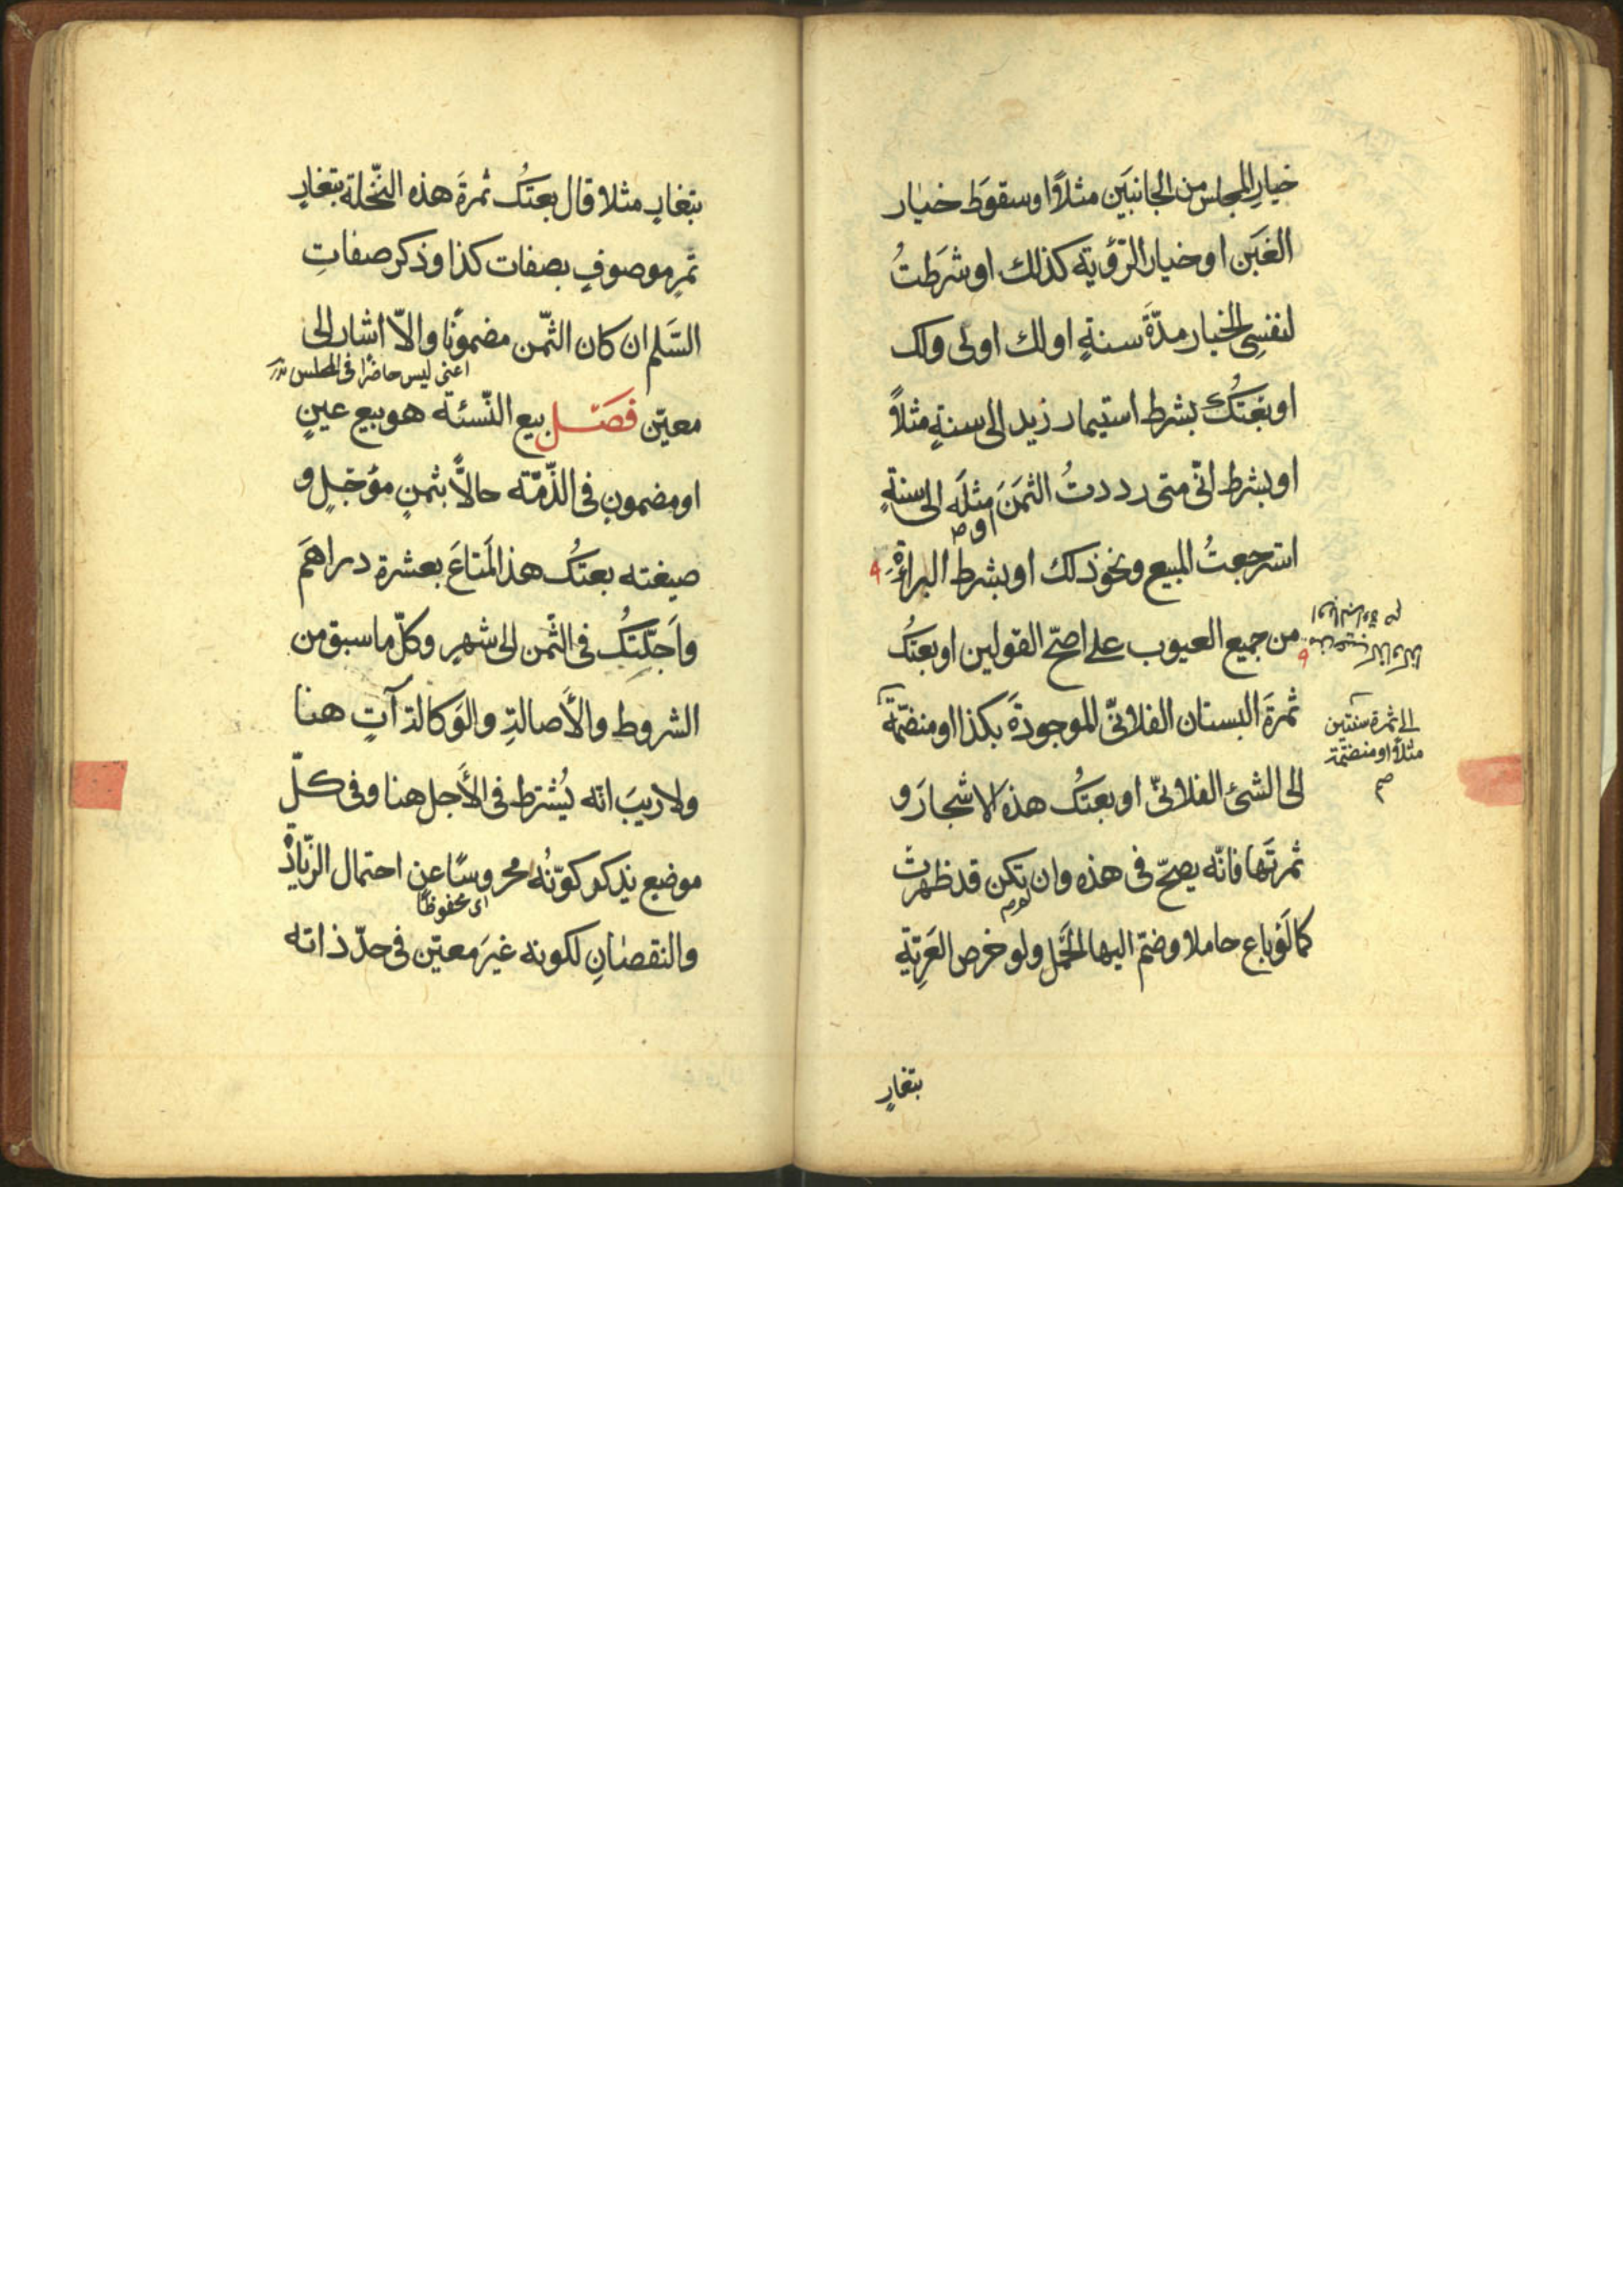 خيارِ المجلس من الجانبَين مثلاً او سقوطَ خيار
الغَبَن او خيار الرّؤية كذلك او شَرَطتُ
لنفسِى الخيار مدّةَ سنةٍ او لك او لى ولك
او بعتُكَ بشرط استيمار زيد الى سنةٍ مثلاً
او بشرط انّى متى رددتُ الثمَنَ مثلَه الى سنةٍ
او صح
استرجعتُ المبيع ونحو ذلك او بشرط البراءةِ
من جميع العيوب على اصحّ القولين او بعتُكَ
ثمرَةَ البستان الفلانىّ الموجودةَ بكذا او منضمّةً
الى ثمرة سنتين
مثلاً او منضمّة
صح
الى الشئ الفلانىّ او بعتُكَ هذه الاشجارَ و
ثمرتَها فانّه يصحّ فى هذه وان تكن قد ظهرت
لم صح
كما لَوْ باع حاملا وضمّ اليها الحَمْل ولو خرص العَرِيّةِ
بتغارٍ
بتغارٍ مثلا قال بعتُكَ ثمرَةَ هذه النّخلة بتغارِ
تمرٍ موصوفٍ بصفات كذا وذكر صفاتِ
السَّلم ان كان الثّمن مضمونًا والاّ اشار الى
اعنى ليس حاضرًا فى المجلس
معيّن فصَل بيع النّسئة هو بيع عينٍ
او مضمونٍ فى الذّمّة حالاًّ بثمنٍ مؤجّلٍ و
صيغته بعتُكَ هذ المَتاعَ بعشرة دراهَمَ
واَجّلتُكَ فى الثّمن الى شهرٍ وكلّ ما سبق من
الشروط والأَصالةِ والوَكالة آتٍ هنا
ولا ريبَ انه يُشترط فى الأَجل هنا وفى كلّ
موضع يذكر كونُه محروسًا عن احتمال الزّيادة
اى محفوظًا
والنقصانِ لكونه غيرَ معيّن فى حدّ ذاته